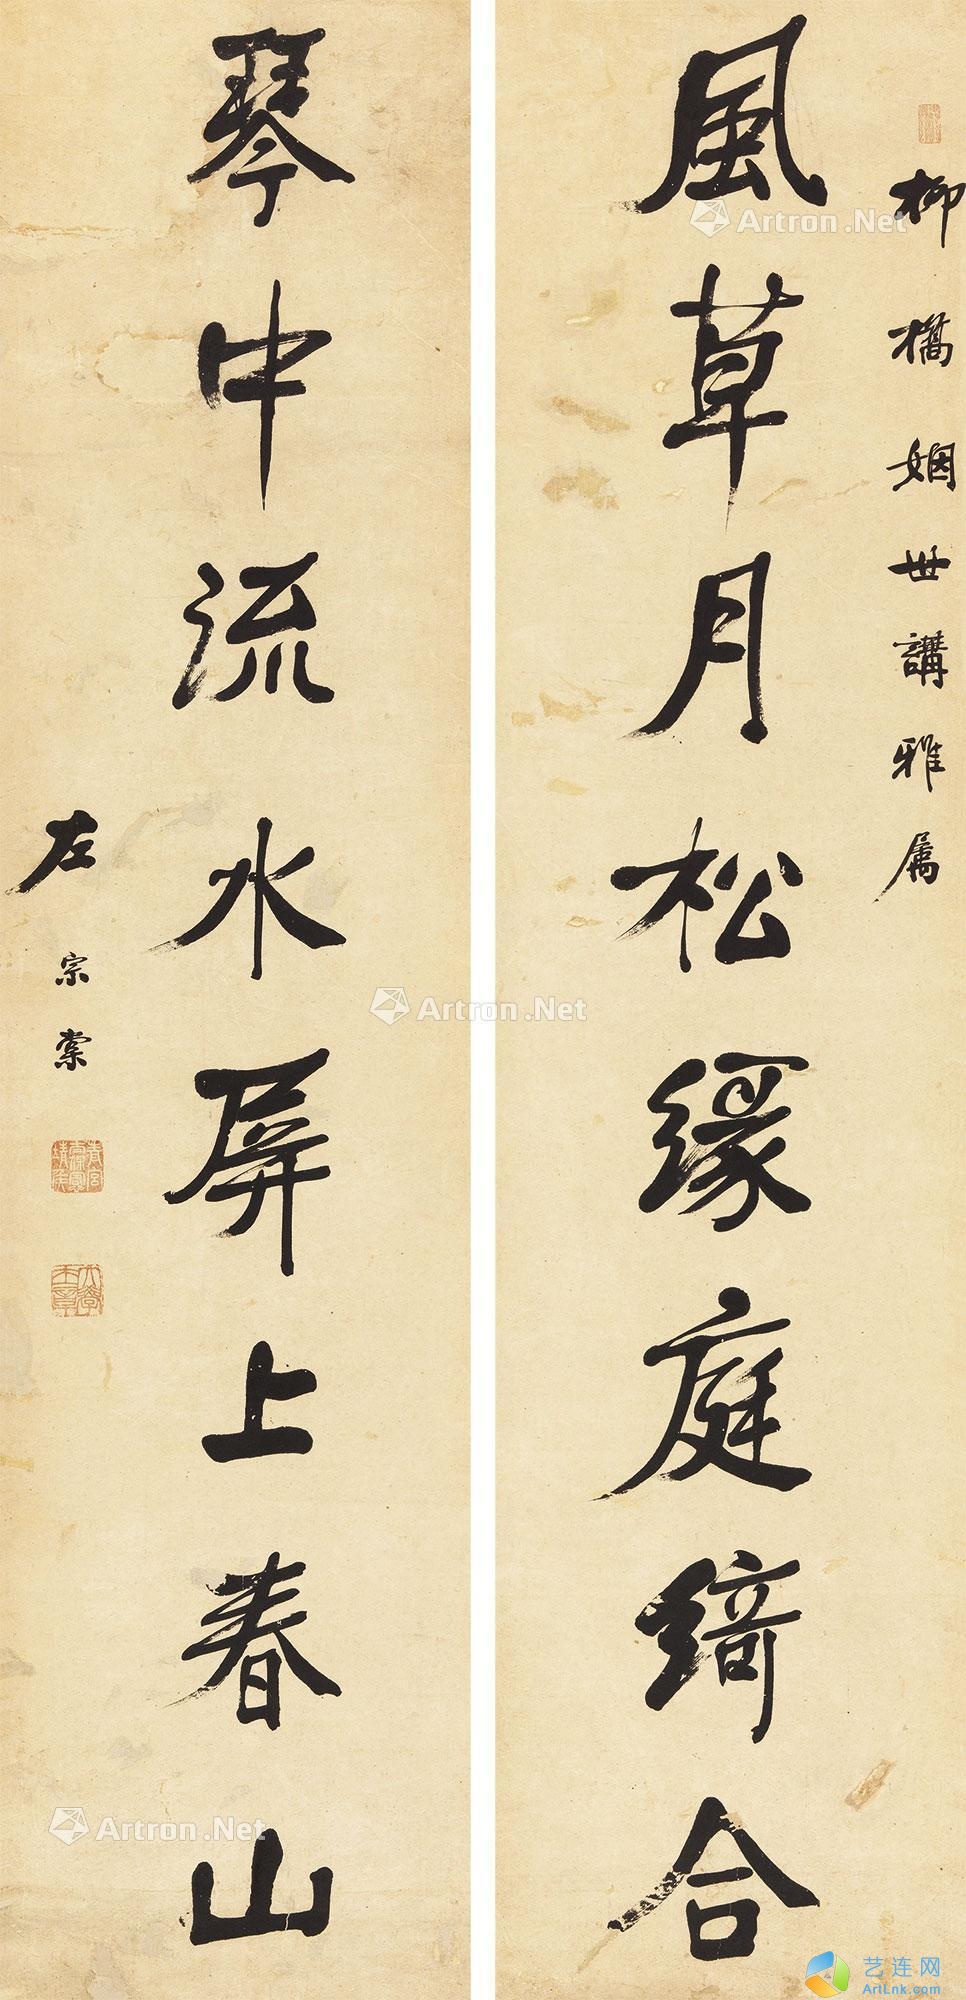 柳橋姻世講雅属
風草月松緣庭綺合
琴中流水屏上春山
左宗棠
Artron.Net
Artron.Net
Artron.Net
艺连网
ArtLnk.com